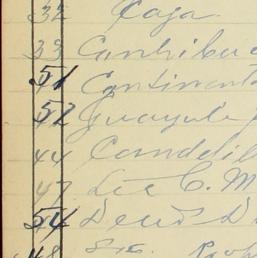 32 Caja
33 Contribu
51 Continent
52 Guayule
44 Candelil
47 Lic C. M
54 Deud D
48